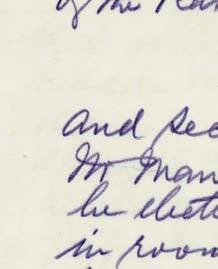 of the
and sec
Mr Man
be elect
in room